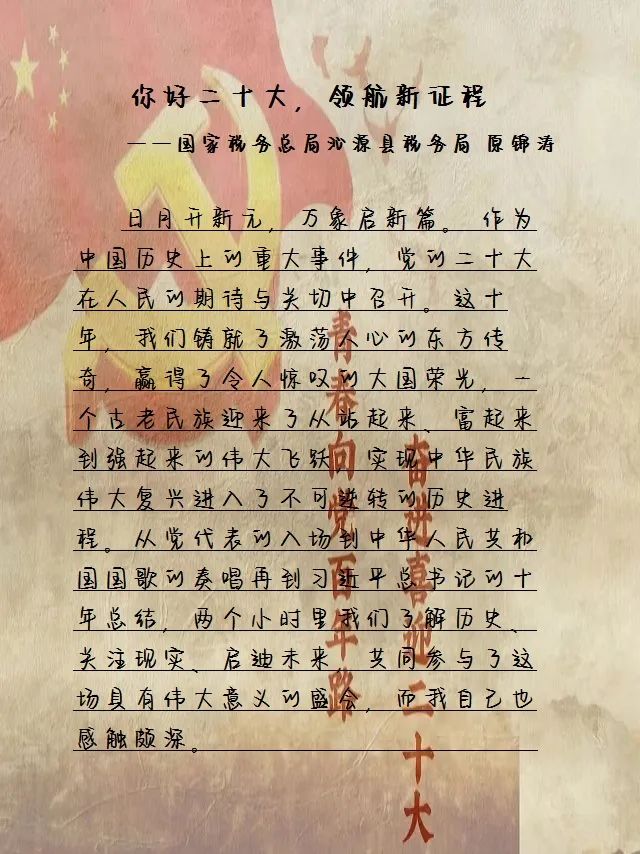 你好二十大，领航新征程
——国家税务总局沁源县税务局 原锦涛
日月开新元，万象启新篇。作为
中国历史上的重大事件，党的二十大
在人民的期待与关切中召开。这十
年，我们铸就了激荡人心的东方传
奇，赢得了令人惊叹的大国荣光，一
个古老民族迎来了从站起来、富起来
到强起来的伟大飞跃，实现中华民族
伟大复兴进入了不可逆转的历史进
程。从党代表的入场到中华人民共和
国国歌的奏唱再到习近平总书记的十
年总结，两个小时里我们了解历史、
关注现实、启迪未来，共同参与了这
场具有伟大意义的盛会，而我自己也
感触颇深。
青春向党百年路
奋进喜迎二十大